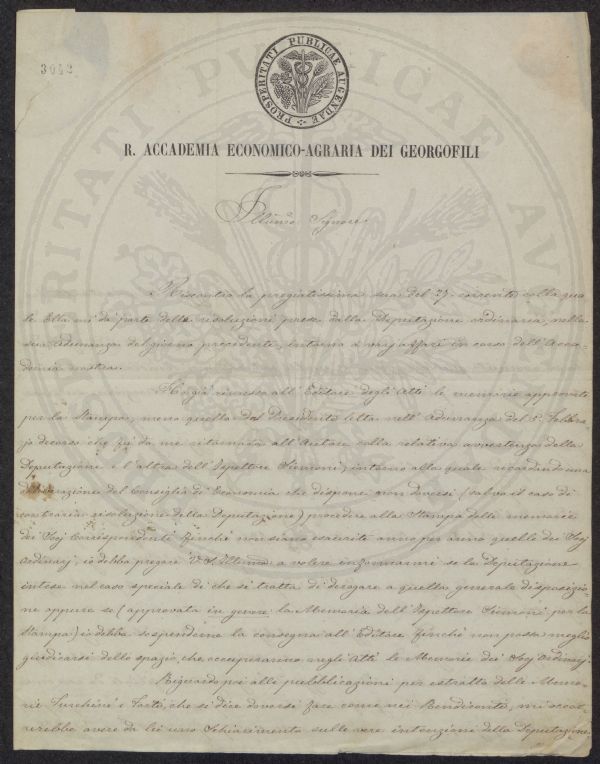 3042
PROSPERITATI PUBLICAE AUGENDAE
R. ACCADEMIA ECONOMICO-AGRARIA DEI GEORGOFILI
Illmo Signore
Riscontro la pregiatissima sua del 27 corrente colla qua
le Ella mi dà parte delle risoluzioni prese dalla Deputazione ordinaria, nella
sua Adunanza del giorno precedente, intorno a varj affari in corso dell'Acca-
demia nostra.
Ho già rimesso all'Editore degli Atti le memorie approvate
per la Stampa, meno quella del Presidente letta nell'Adunanza del
decorso che fu da me ritornata all'Autore colla relativa avvertenza della
Deputazione e l'altra dell'Ispettore Siemoni, intorno alla quale ricordando una
deliberazione del Consiglio di Economia che dispone non doversi (salvo il caso di
contraria risoluzione della Deputazione) procedere alla Stampa delle memorie
dei Socj Corrispondenti finchè non siano esaurite anno per anno quelle dei Socj
Ordinarj, io debbo pregare V. S. Illma a volere informarmi se la Deputazione
intese nel caso speciale di che si tratta di derogare a quella generale disposizio-
ne oppure se (approvata in genere la Memoria dell'Ispettore Siemoni per la
Stampa) io debba sospenderne la consegna all'Editore finchè non possa meglio
giudicarsi dello spazio, che occuperanno negli Atti le Memorie dei Socj Ordinarj.
Riguardo poi alle pubblicazioni per estratto delle Memo-
rie Luschini e Sarti, che si dice doversi fare come nei Rendiconti, mi occor
rerebbe avere da lei uno Schiarimento sulle vere intenzioni della Deputazione